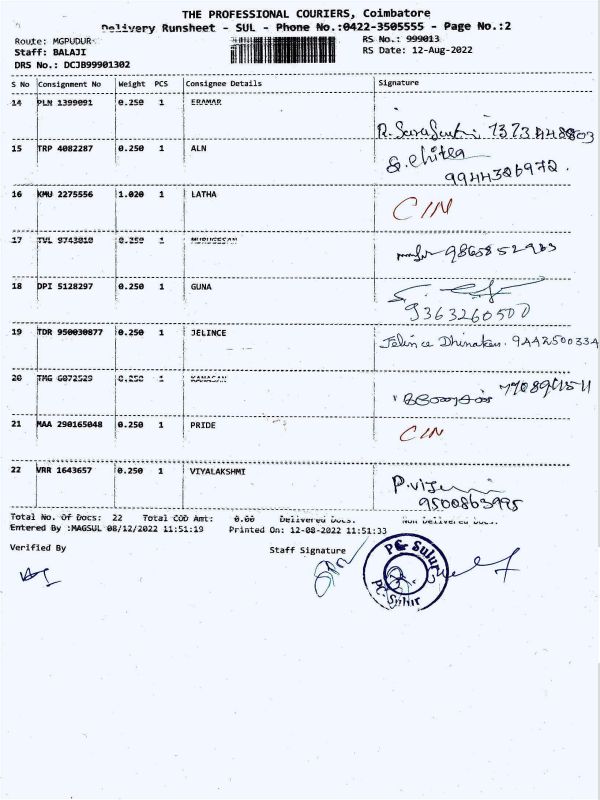 THE PROFESSIONAL COURIERS, Coimbatore
Delivery Runsheet - SUL - Phone No.:0422-3505555 - Page No.:2
Route: MGPUDUR
RS No.: 999013
Staff: BALAJI
RS Date: 12-Aug-2022
DRS No.: DCJB99901302
S No Consignment No Weight PCS Consignee Details Signature
14 PLN 1399091 0.250 1 ERAMAR
15 TRP 4082287 0.250 1 ALN
9944326972.
16 KMU 2275556 1.020 1 LATHA
C/N
17 TVL 9743010 0.250 1 MURUGESAN
18 DPI 5128297 0.250 1 GUNA
9363260500
19 TDR 950030877 0.250 1 JELINCE Jelince Dhinaken. 9442500334
20 TMG G072529 0.250 1
21 MAA 290165048 0.250 1 PRIDE C/N
22 VRR 1643657 0.250 1 VIYALAKSHMI
9500863995
Total No. Of Docs: 22 Total COD Amt: 0.00 Delivered Docs. Non Delivered Docs.
Entered By :MAGSUL 08/12/2022 11:51:19 Printed On: 12-08-2022 11:51:33
Verified By Staff Signature
PC Sulur
PC. Sulur